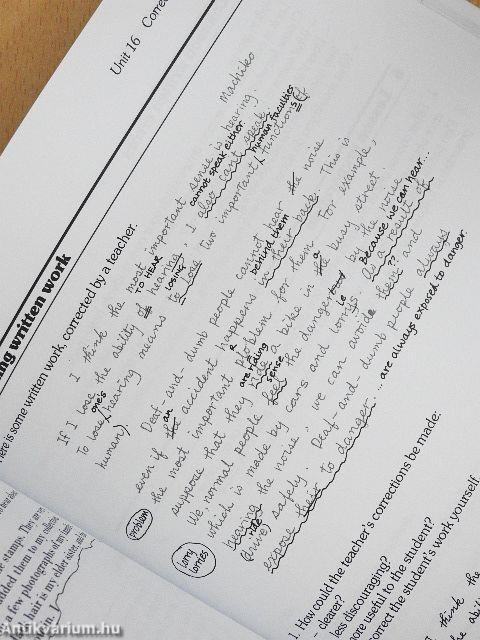 Unit 16 Correc
ng written work
ere is some written work, corrected by a teacher.
Machiko
I think the most important sense is hearing.
TO HEAR cannot speak either human faculties
If I lose the ability of hearing, I also can't speak.
one's LOSING
To lose hearing means to lose two important functions of
human.
Deaf-and-dumb people cannot hear the noise
behind them
even if the an accident happens in their back. This is
a
the most important problem for them. For example,
are riding a
suppose that they ride a bike in the busy street.
sense ie Because we can hear...
We normal people feel the danger by the noise
which is made by cars and lorrys. As a result of
??
hearing the noise, we can avoid them and
ride
drive safely. Deaf-and dumb people always
expose their to danger. are always exposed to danger.
problem
lorry
lorries
1. How could the teacher's corrections be made:
less discouraging?
learer?
ore useful to the student?
orrect the student's work yourself
think the
e stamps.
dded them to my
few photographs of my
hair is my elder sister
Antikvarium.hu